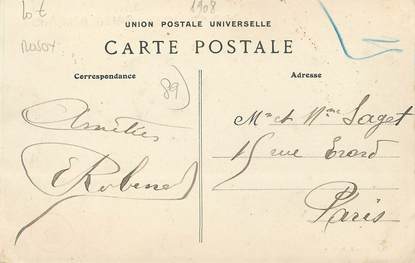 Lot
1908
UNION POSTALE UNIVERSELLE
CARTE POSTALE
Correspondance
Adresse
89
Amitiés
Mr et Mme Saget
15 rue Erard
Paris